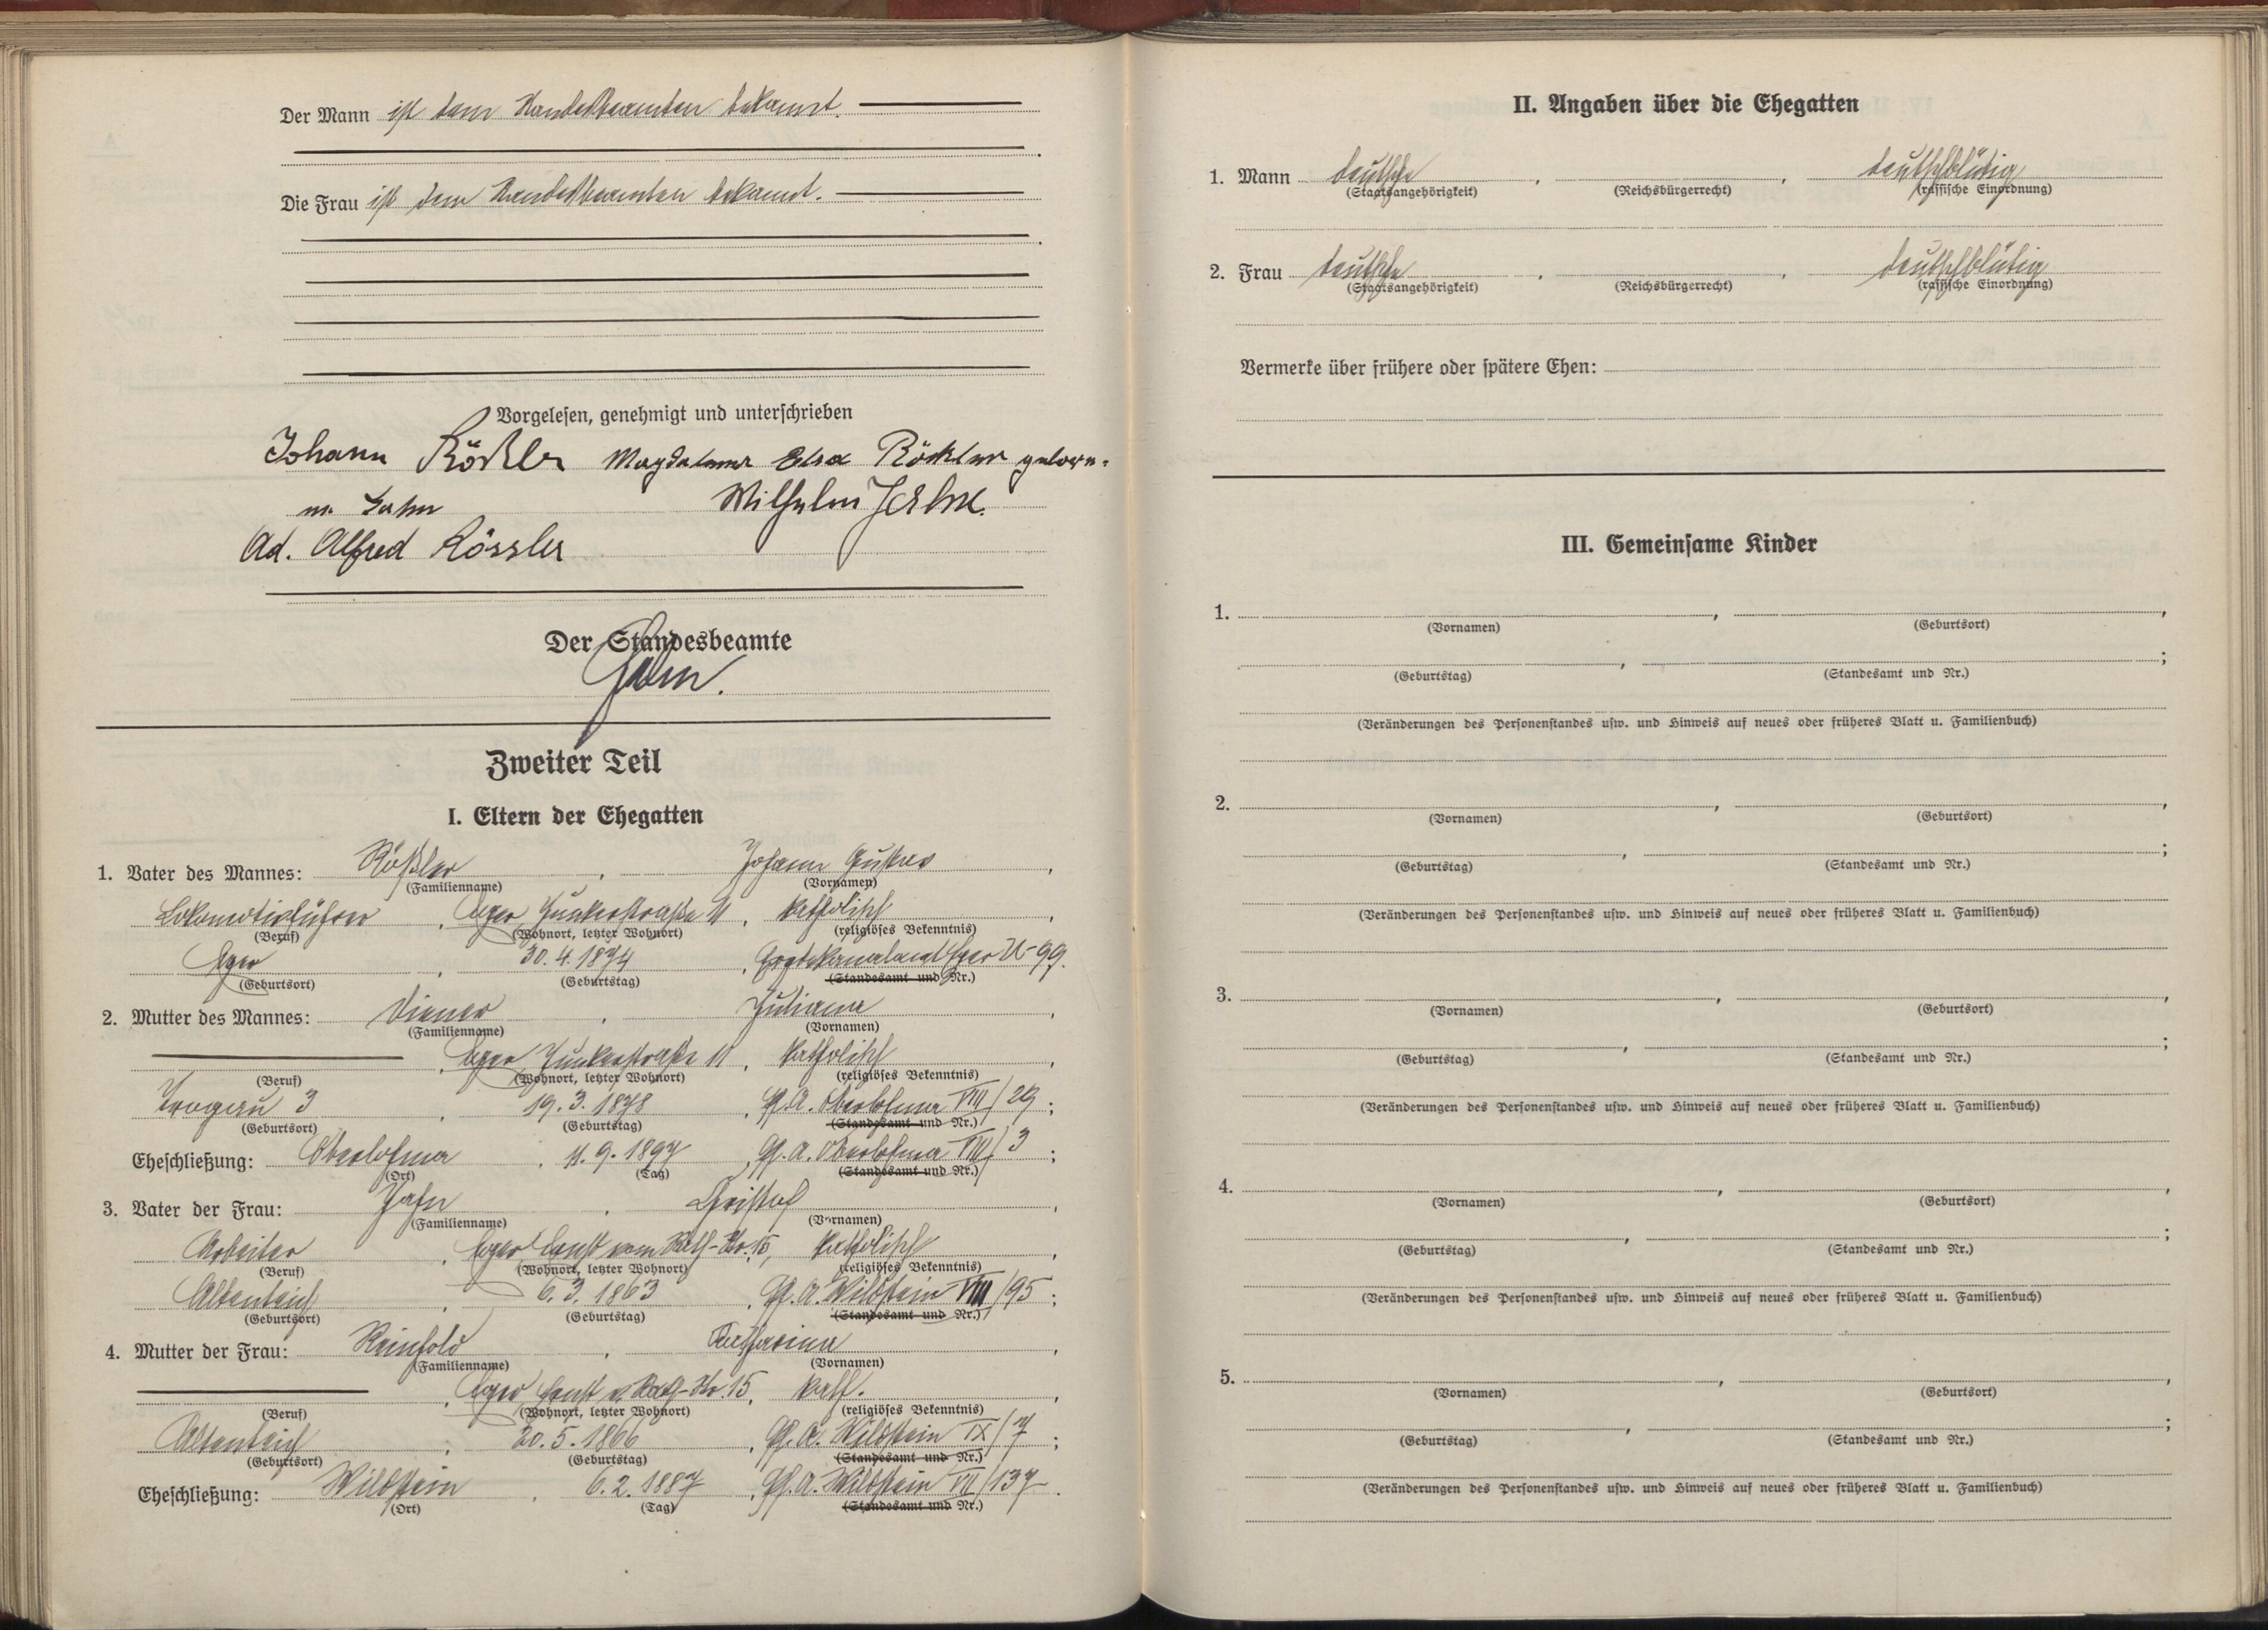 Der Mann ist dem Standesbeamten bekannt.
Die Frau ist dem Standesbeamten bekannt.
Vorgelesen, genehmigt und unterschrieben
Johann Rößler Magdalena Elsa
Wilhelm
Ad. Alfred Rössler
Der Standesbeamte
Zweiter Teil
I. Eltern der Ehegatten
1. Vater des Mannes: Rößler, Johann Gustav,
(Familienname) (Vornamen)
Lokomotivführer, Eger Junkerstraße 11, katholisch,
(Beruf) (Wohnort, letzter Wohnort) (religiöses Bekenntnis)
Eger, 30.4.1874, Eger U-99.
(Geburtsort) (Geburtstag) (Standesamt und Nr.)
2. Mutter des Mannes: Diener, Juliana,
(Familienname) (Vornamen)
, Eger Junkerstraße 11, katholisch,
(Beruf) (Wohnort, letzter Wohnort) (religiöses Bekenntnis)
Trogau 3, 19.3.1878, Pf. A. Oberlohma VIII/29;
(Geburtsort) (Geburtstag) (Standesamt und Nr.)
Eheschließung: Oberlohma, 11.9.1897, Pf. A. Oberlohma VIII/3;
(Ort) (Tag) (Standesamt und Nr.)
3. Vater der Frau: Jahn, Christof,
(Familienname) (Vornamen)
Arbeiter, Eger Ernst vom Rath-Str. 15, katholisch,
(Beruf) (Wohnort, letzter Wohnort) (religiöses Bekenntnis)
Altenteich, 6.3.1863, Pf. A. Wildstein VIII/95;
(Geburtsort) (Geburtstag) (Standesamt und Nr.)
4. Mutter der Frau: Reinhold, Katharina,
(Familienname) (Vornamen)
, Eger Ernst v. Rath-Str. 15, kath.,
(Beruf) (Wohnort, letzter Wohnort) (religiöses Bekenntnis)
Altenteich, 20.5.1866, Pf. A. Wildstein IX/7;
(Geburtsort) (Geburtstag) (Standesamt und Nr.)
Eheschließung: Wildstein, 6.2.1887, Pf. A. Wildstein VII/137.
(Ort) (Tag) (Standesamt und Nr.)
II. Angaben über die Ehegatten
1. Mann deutsche, , deutschblütig
(Staatsangehörigkeit) (Reichsbürgerrecht) (rassische Einordnung)
2. Frau deutsche, , deutschblütig
(Staatsangehörigkeit) (Reichsbürgerrecht) (rassische Einordnung)
Vermerke über frühere oder spätere Ehen:
III. Gemeinsame Kinder
1. , ,
(Vornamen) (Geburtsort)
, ;
(Geburtstag) (Standesamt und Nr.)
(Veränderungen des Personenstandes usw. und Hinweis auf neues oder früheres Blatt u. Familienbuch)
2. , ,
(Vornamen) (Geburtsort)
, ;
(Geburtstag) (Standesamt und Nr.)
(Veränderungen des Personenstandes usw. und Hinweis auf neues oder früheres Blatt u. Familienbuch)
3. , ,
(Vornamen) (Geburtsort)
, ;
(Geburtstag) (Standesamt und Nr.)
(Veränderungen des Personenstandes usw. und Hinweis auf neues oder früheres Blatt u. Familienbuch)
4. , ,
(Vornamen) (Geburtsort)
, ;
(Geburtstag) (Standesamt und Nr.)
(Veränderungen des Personenstandes usw. und Hinweis auf neues oder früheres Blatt u. Familienbuch)
5. , ,
(Vornamen) (Geburtsort)
, ;
(Geburtstag) (Standesamt und Nr.)
(Veränderungen des Personenstandes usw. und Hinweis auf neues oder früheres Blatt u. Familienbuch)